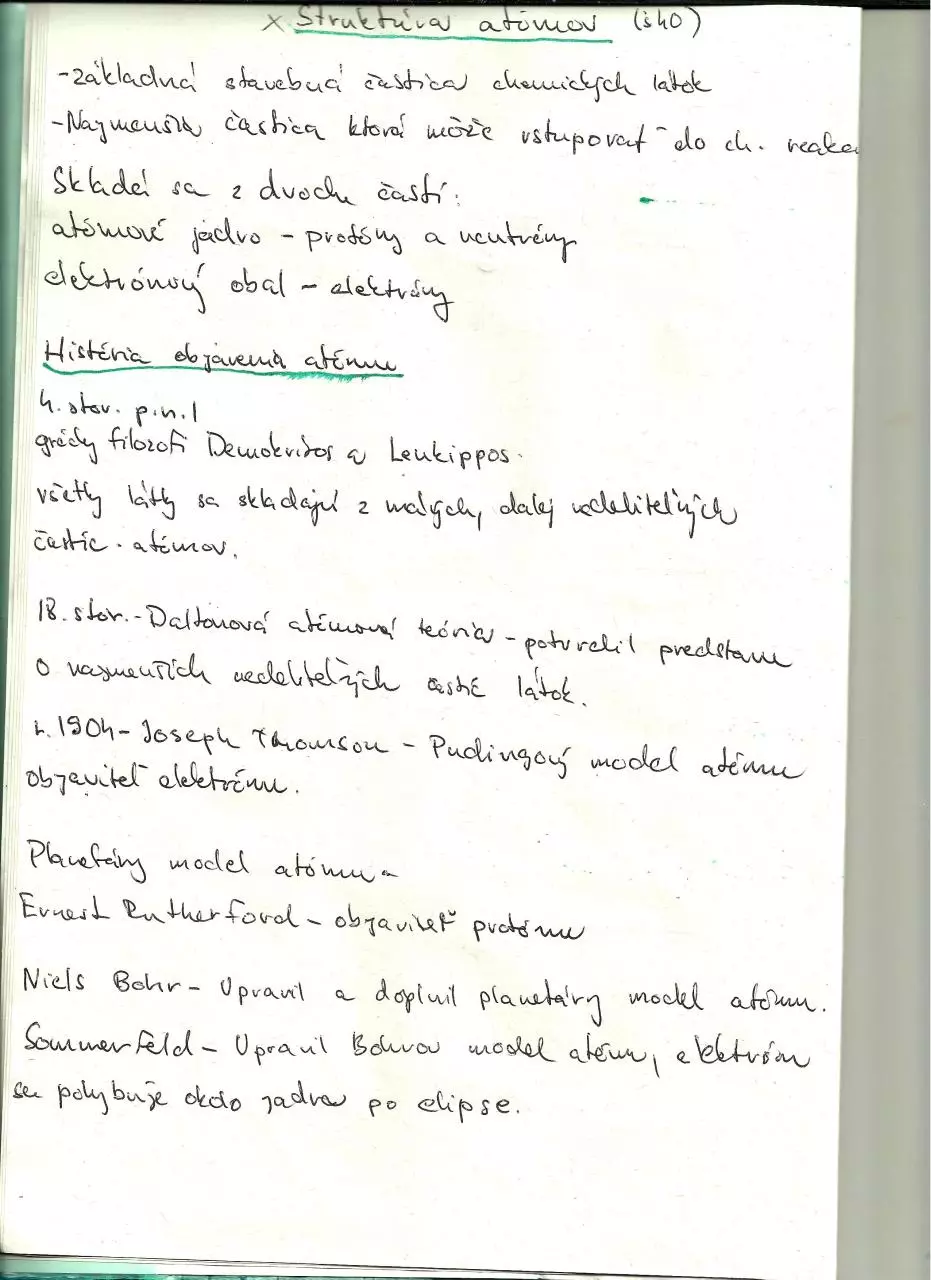 x Struktúra atómov
-základná stavebná častica chemických látok
-Najmenšia častica ktorá môže vstupovať do ch. reakc
Skladá sa z dvoch častí:
atómové jadro - protóny a neutróny
elektrónový obal - elektróny
História objavenia atómu
4. stor. p.n.l
grécky filozofi Demokritos a Leukippos.
všetky látky sa skladajú z malých, dalej nedeliteľných
častíc - atómov.
18. stor. - Daltonová atómová teória - potvrdil predstavu
o najmenších nedeliteľných častíc látok.
r. 1904 - Joseph Thomson - Pudingový model atómu
objaviteľ elektrónu.
Planetárny model atómu -
Ernest Rutherford - objaviteľ protónu
Niels Bohr - Upravil a doplnil planetárny model atómu.
Sommerfeld - Upravil Bohrov model atómu, elektrón
sa pohybuje okolo jadra po elipse.